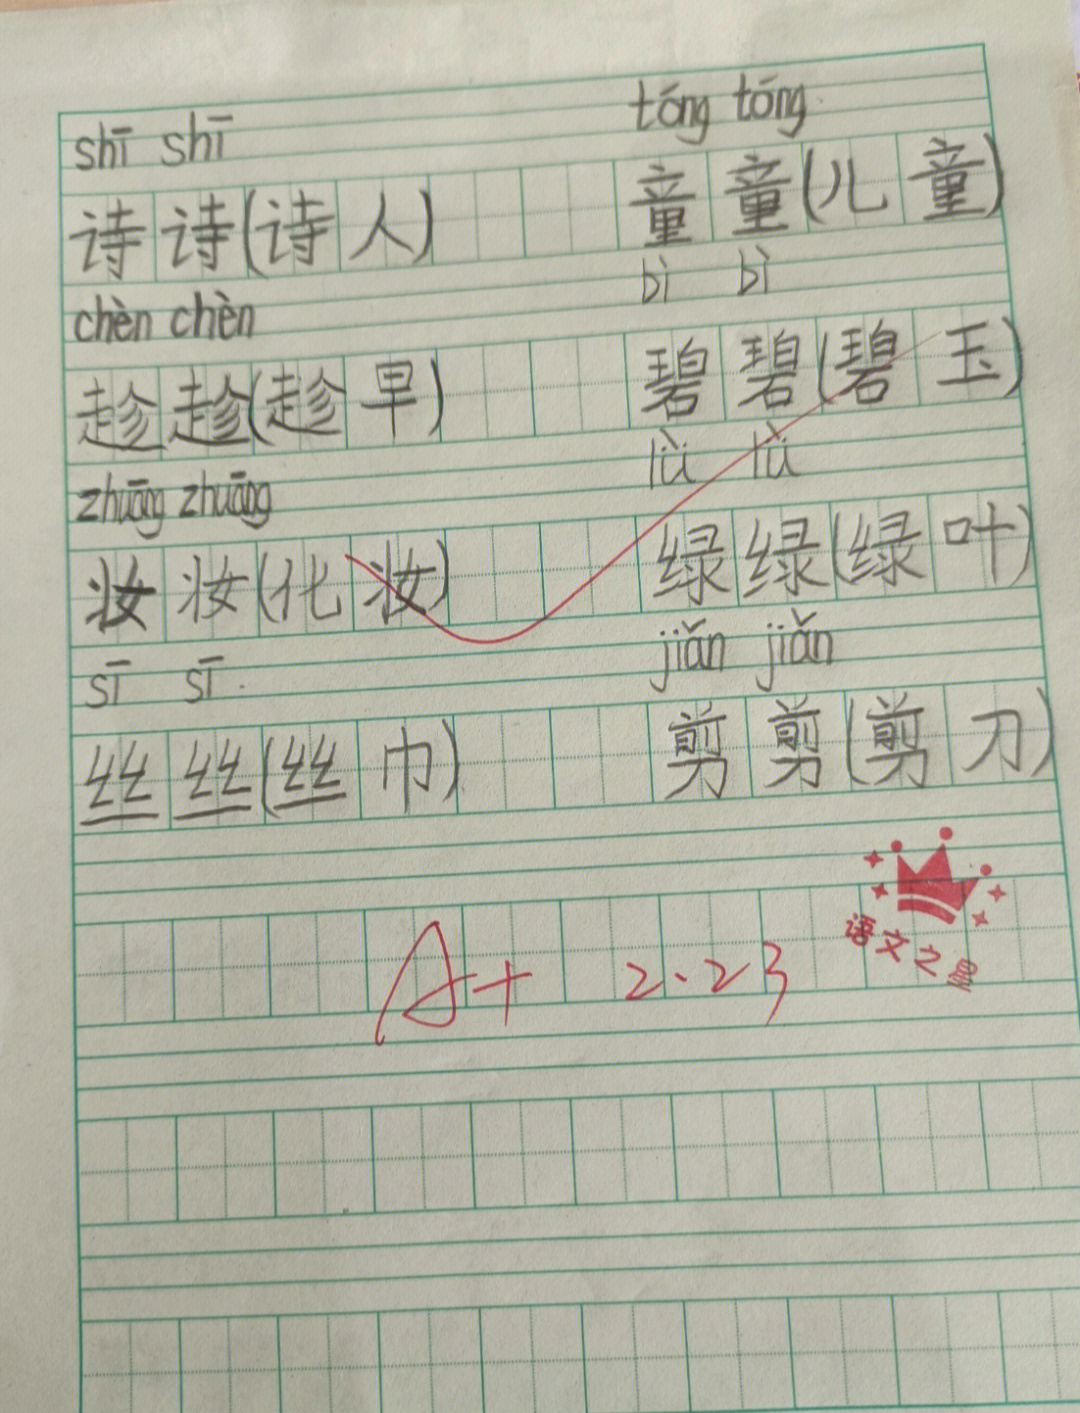 shī shī tóng tóng
诗诗(诗人) 童童(儿童)
chèn chèn bì bì
趁趁(趁早) 碧碧(碧玉)
zhuāng zhuāng lǜ lǜ
妆妆(化妆) 绿绿(绿叶)
sī sī jiǎn jiǎn
丝丝(丝巾) 剪剪(剪刀)
A+ 2.23
语文之星